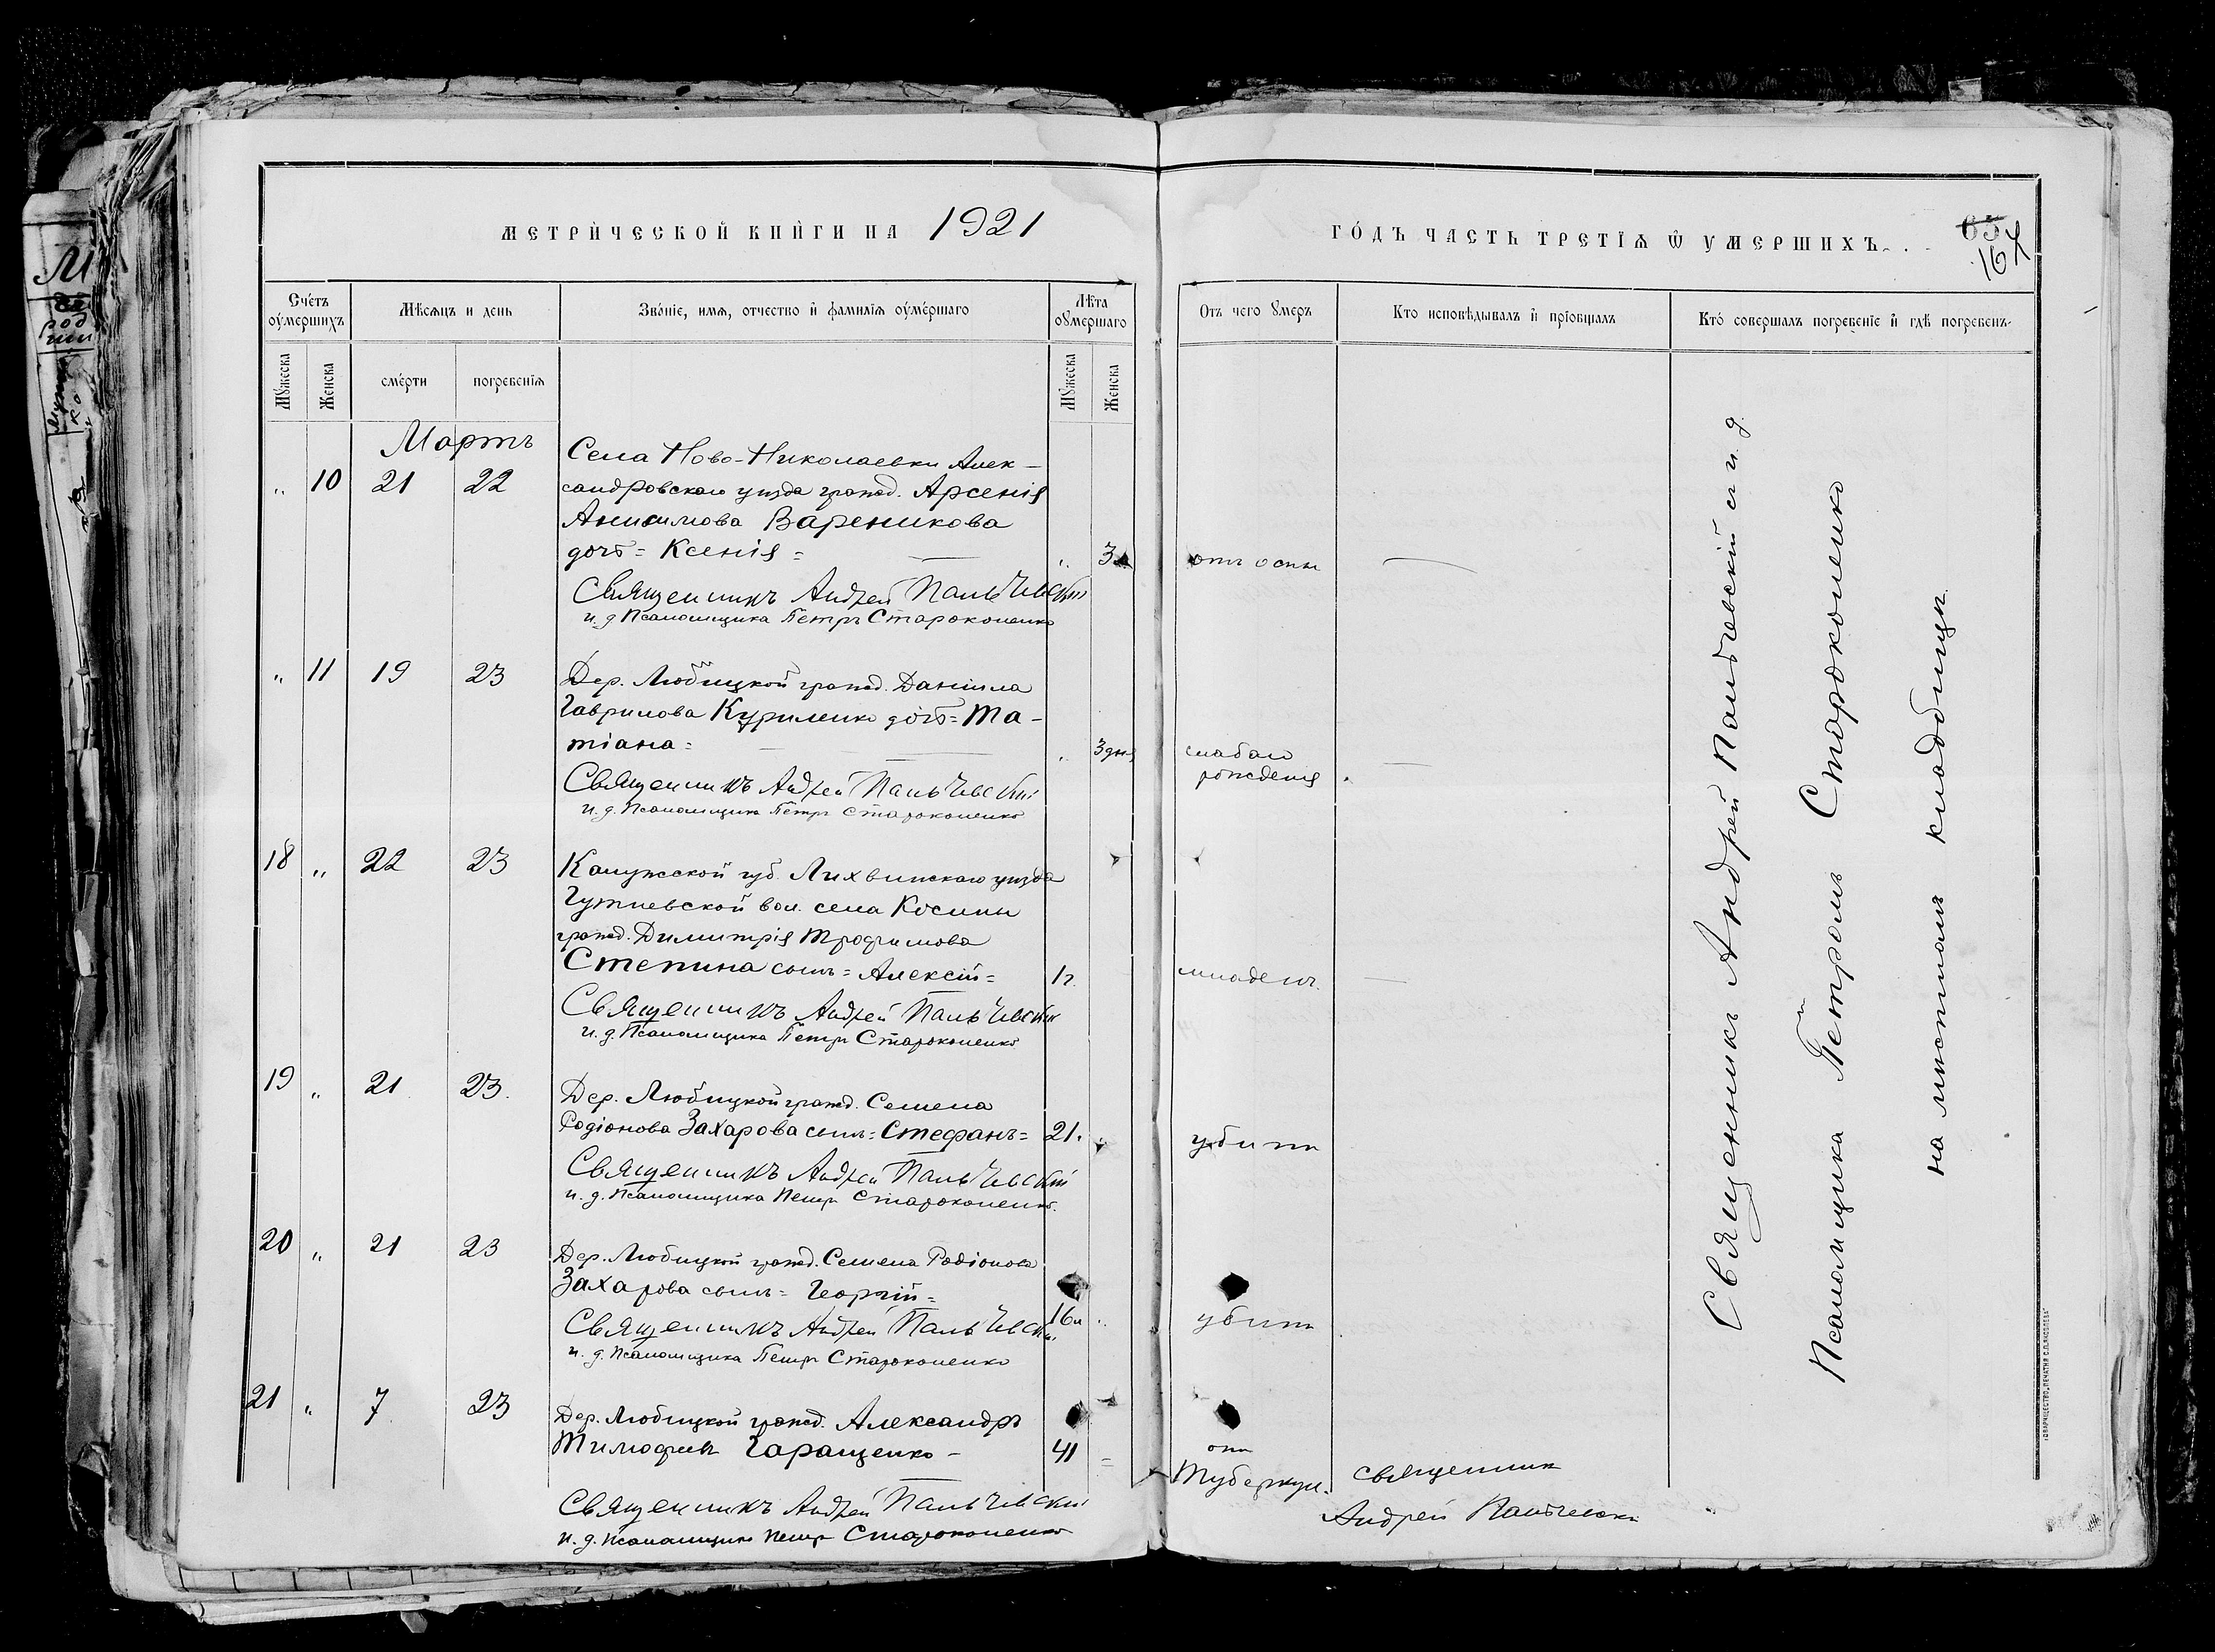 МЕТРИЧЕСКОЙ КНИГИ НА 1921
ГОДЪ ЧАСТЬ ТРЕТІЯ Ѿ УМЕРШИХЪ
65
167
Счетъ оумершихъ
Мѣсяцъ и день
Званіе, имя, отчество и фамилія оумершаго
Лѣта оумершаго
Отъ чего умеръ
Кто исповѣдывалъ и пріобщалъ
Кто совершалъ погребеніе и гдѣ погребенъ
Мужеска
Женска
смерти
погребенія
Мужеска
Женска
Мартъ
„ 10 21 22
Села Ново-Николаевки Алек-
сандровскаго уѣзда гражд. Арсенія
Анисимова Вареникова
дочь = Ксенія =
„ 3
отъ оспы
Священникъ Андрей Пальчевскій
и. д. Псаломщика Петръ Староконенко
„ 11 19 23
Дер. Любицкой гражд. Даніила
Гаврилова Куриленко дочь = Та-
тіана =
3 дня
слабаго
рожденія
Священникъ Андрей Пальчевскій
и. д. Псаломщика Петръ Староконенко
18 „ 22 23
Калужской губ. Лихвинскаго уѣзда
вол. села
гражд. Димитрія Трофимова
Степина сынъ = Алексій =
1 г.
младен.
Священникъ Андрей Пальчевскій
и. д. Псаломщика Петръ Староконенко
19 „ 21 23.
Дер. Любицкой гражд. Семена
Родіонова Захарова сынъ = Стефанъ =
21.
убитъ
Священникъ Андрей Пальчевскій
и. д. Псаломщика Петръ Староконенко.
20 „ 21 23
Дер. Любицкой гражд. Семена Родіонова
Захарова сынъ = Георгій =
16 л
убитъ
Священникъ Андрей Пальчевскій
и. д. Псаломщика Петръ Староконенко
21 „ 7 23
Дер. Любицкой гражд. Александръ
Тимофеевъ Гаращенко -
41
отъ
Туберкул.
священник
Андрей Пальчевскій
Священникъ Андрей Пальчевскій
и. д. Псаломщика Петръ Староконенко
Священникъ Андрей Пальчевскій съ и. д.
Псаломщика Петромъ Староконенко
на мѣстномъ кладбищѣ